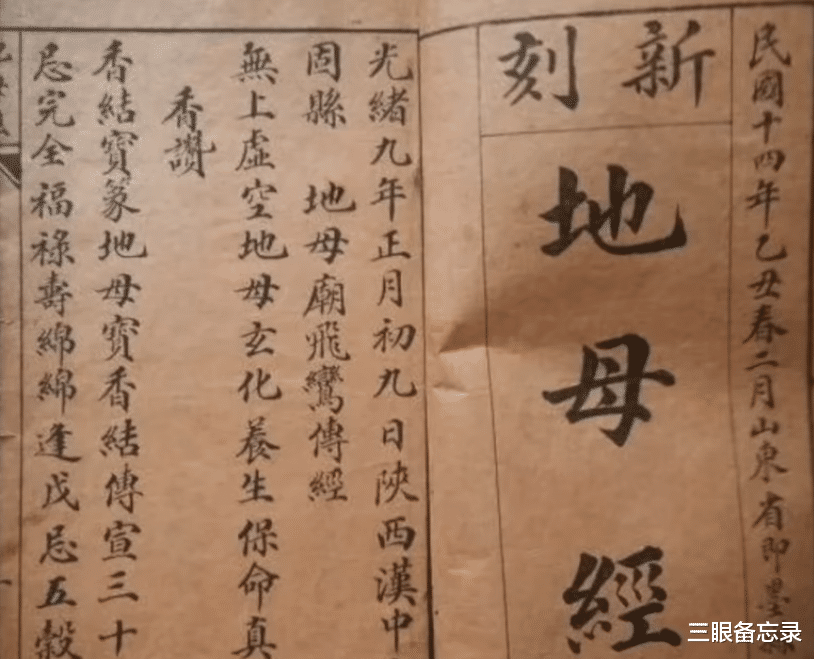 民國十四年乙丑春二月山東省即墨縣
新刻
地母經
光緒九年正月初九日陝西漢中
固縣 地母廟飛鸞傳經
無上虛空地母玄化養生保命真
香讚
香結寶篆地母寶香結傳宣三十
忌完全福祿壽綿綿逢戊忌五穀
三眼备忘录